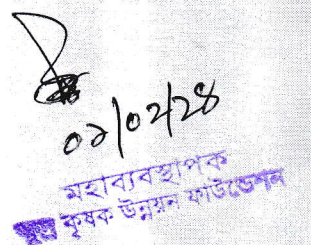 ০১/০২/২৪
মহাব্যবস্থাপক
ক্ষুদ্র কৃষক উন্নয়ন ফাউন্ডেশন